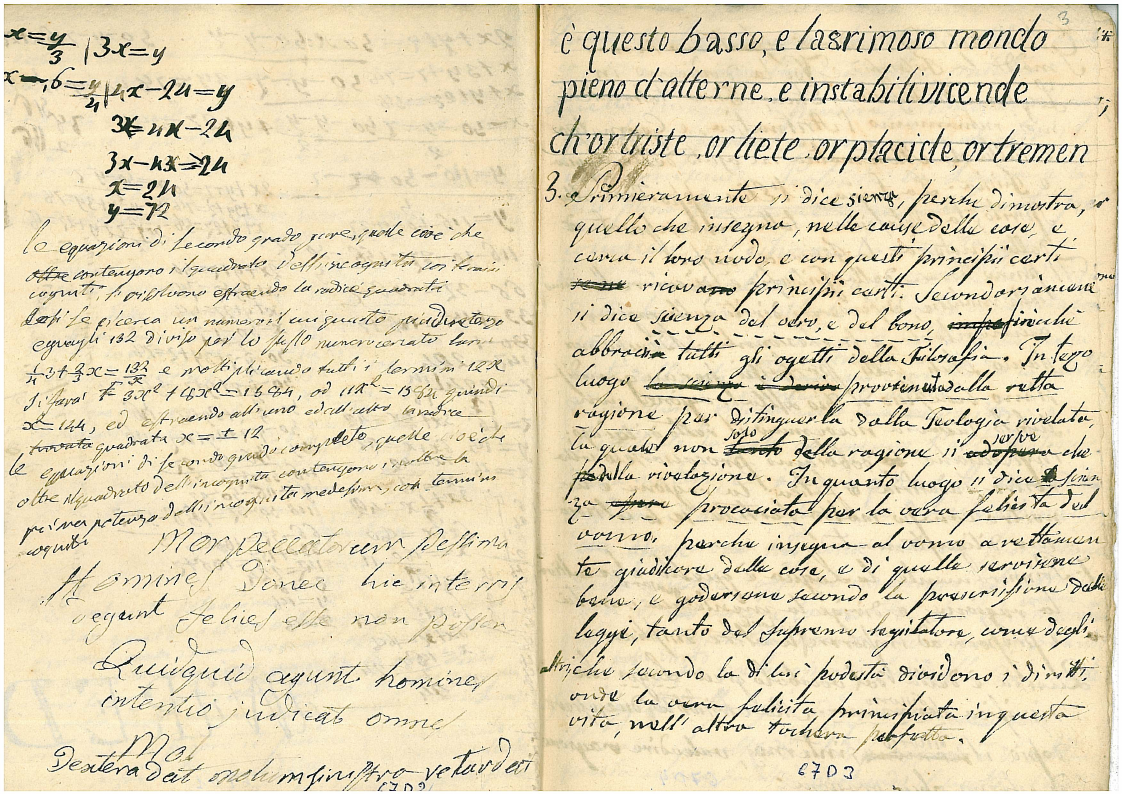 x = y/3 | 3x = y
x - 6 = y/4 | 4x - 24 = y
3x = 4x - 24
3x - 4x = 24
x = 24
y = 72
le equazioni di secondo grado pure, quelle cioè che
oltre contengono il quadrato dell'incognita coi termini
cogniti, si risolvono estraendo la radice quadrata
se ricerca un numero il cui quarto più due terzo
eguagli 132 diviso per lo stesso numero cercato
1/4 + 2/3 x = 132/x e moltiplicando tutti i termini 12x
si farà 3x² + 8x² = 1584, od 11x² = 1584 quindi
x = 144, ed estraendo all'uno ed all'altro la radice
quadrata x = ± 12
le equazioni di secondo grado complete quelle cioè che
oltre il quadrato dell'incognita contengono inoltre la
prima potenza dell'incognita medesima, con termini
cogniti
Mors peccatorum pessima
Homines Donec hic in terris
degunt felices esse non possunt
Quidquid agunt homines
intentio judicat omnes
Mol
Dextera dat sinistra
67D2
3
è questo basso, e lagrimoso mondo
pieno d'alterne, e instabili vicende
ch'or triste, or liete, or placide, or tremen
3. Primieramente si dice sienza, perche dimostra,
quello che insegna, nelle cause delle cose, e
cerca il loro nodo, e con questi principii certi
ricava principii certi. Secondariamente
si dice scienza del vero, e del bono, finchè
abbraccia tutti gli ogetti della Filosofia. In terzo
luogo proveniente dalla retta
ragione per distinguerla dalla Teologia rivelata,
la quale non solo della ragione si serve che
della rivelazione. In quanto luogo si dice scien
za procaciata per la vera felicità del
uomo, perche insegna al uomo a rettamen
te giudicare delle cose, e di quelle servirsene
bene, e godersene secondo la prescrissione delle
leggi, tanto del supremo legislatore, come degli
altri che secondo la di lui podestà dividono i diritti,
onde la vera felicità principiata in questa
vita, nell'altra sarà perfetta.
67D3